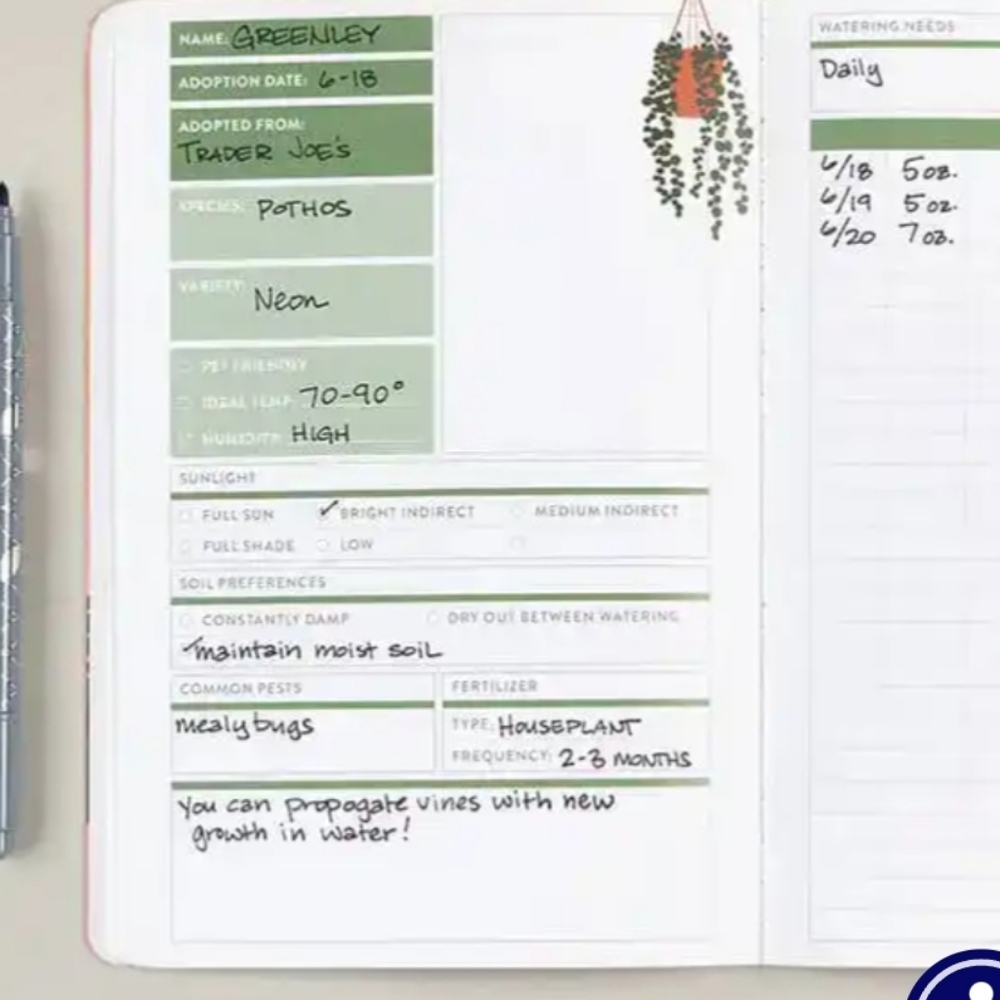 NAME: GREENLEY
ADOPTION DATE: 6-18
ADOPTED FROM:
TRADER JOE'S
SPECIES: POTHOS
VARIETY:
Neon
PET FRIENDLY
IDEAL TEMP: 70-90°
HUMIDITY: HIGH
SUNLIGHT
FULL SUN ✓ BRIGHT INDIRECT MEDIUM INDIRECT
FULL SHADE LOW
SOIL PREFERENCES
CONSTANTLY DAMP DRY OUT BETWEEN WATERING
maintain moist soil
COMMON PESTS
mealybugs
FERTILIZER
TYPE: HOUSEPLANT
FREQUENCY: 2-3 MONTHS
you can propagate vines with new
growth in water!
WATERING NEEDS
Daily
6/18 5oz.
6/19 5oz.
6/20 7oz.